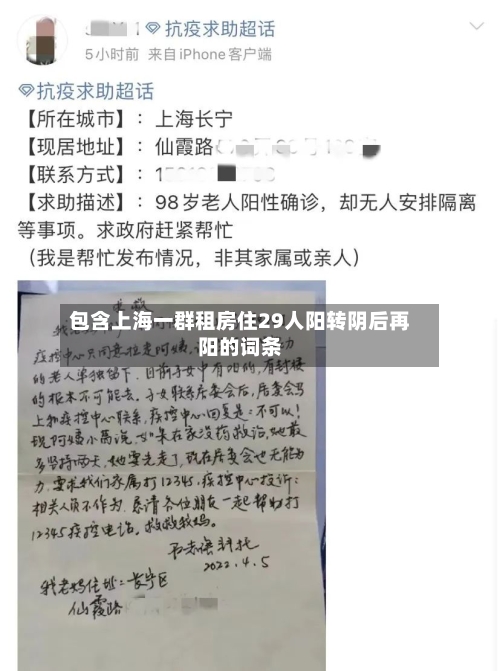 抗疫求助超话
5小时前 来自iPhone客户端
抗疫求助超话
【所在城市】：上海长宁
【现居地址】：仙霞路
【联系方式】：1
【求助描述】：98岁老人阳性确诊，却无人安排隔离
等事项。求政府赶紧帮忙
（我是帮忙发布情况，非其家属或亲人）
包含上海一群租房住29人阳转阴后再
阳的词条
疫控中心只同意拉走阿姨
的老人单独留下．目前子女中有阳的，有封楼
的根本不可能去。子女联系居委会后，居委会马
上和疫控中心联系，疫控中心回复是：不可以！
现阿姨小高说，如果在家没药救治，她最
多坚持两天，她要先走了，现在居委会也无能为
力，要求我们家属打12345，疫控中心投诉：
相关人员不作为．恳请各位朋友一起帮助打
12345疫控电话。救救我妈。
2022.4.5
我老妈住址：长宁区
仙霞路